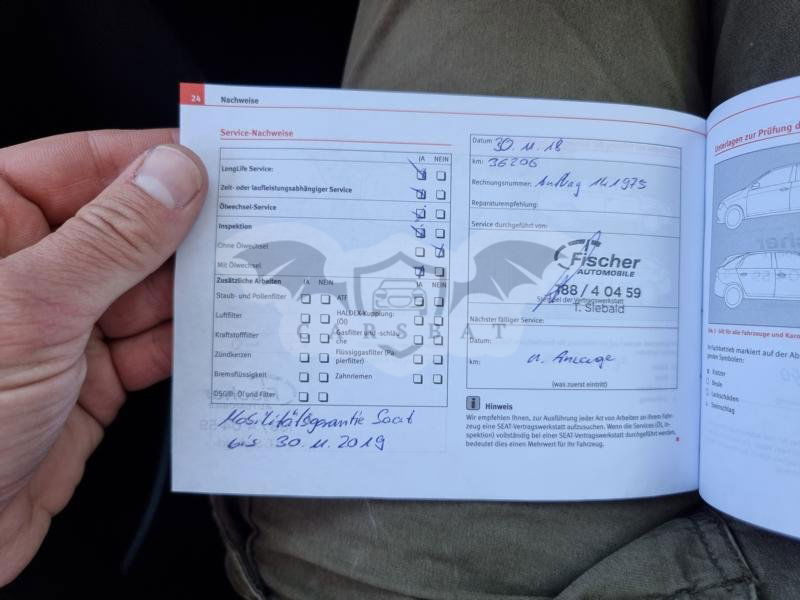 24 Nachweise
Service-Nachweise
JA NEIN
LongLife Service:
Zeit- oder laufleistungsabhängiger Service
Ölwechsel-Service
Inspektion
Ohne Ölwechsel
Mit Ölwechsel
Zusätzliche Arbeiten
JA NEIN JA NEIN
Staub- und Pollenfilter ATF
Luftfilter HALDEX-Kupplung:
(Öl)
Kraftstofffilter Gasfilter und -schläu-
che
Zündkerzen Flüssiggasfilter (Pa-
pierfilter)
Bremsflüssigkeit Zahnriemen
DSG®: Öl und Filter
Mobilitätsgarantie Seat
bis 30.11.2019
Datum 30.11.18
km: 36206
Rechnungsnummer: Auftrag 141975
Reparaturempfehlung:
Service durchgeführt von:
Fischer
AUTOMOBILE
188 / 4 04 59
Stempel der Vertragswerkstatt
T. Siebald
Nächster fälliger Service:
Datum:
km: n. Anzeige
(was zuerst eintritt)
i Hinweis
Wir empfehlen Ihnen, zur Ausführung jeder Art von Arbeiten an Ihrem Fahr-
zeug eine SEAT-Vertragswerkstatt aufzusuchen. Wenn die Services (Öl, In-
spektion) vollständig bei einer SEAT-Vertragswerkstatt durchgeführt werden,
bedeutet dies einen Mehrwert für Ihr Fahrzeug.
Unterlagen zur Prüfung d
Gilt für alle Fahrzeuge und Karo
Fachbetrieb markiert auf der Ab
Kratzer
Beule
Lackschäden
Steinschlag
CARSEAT